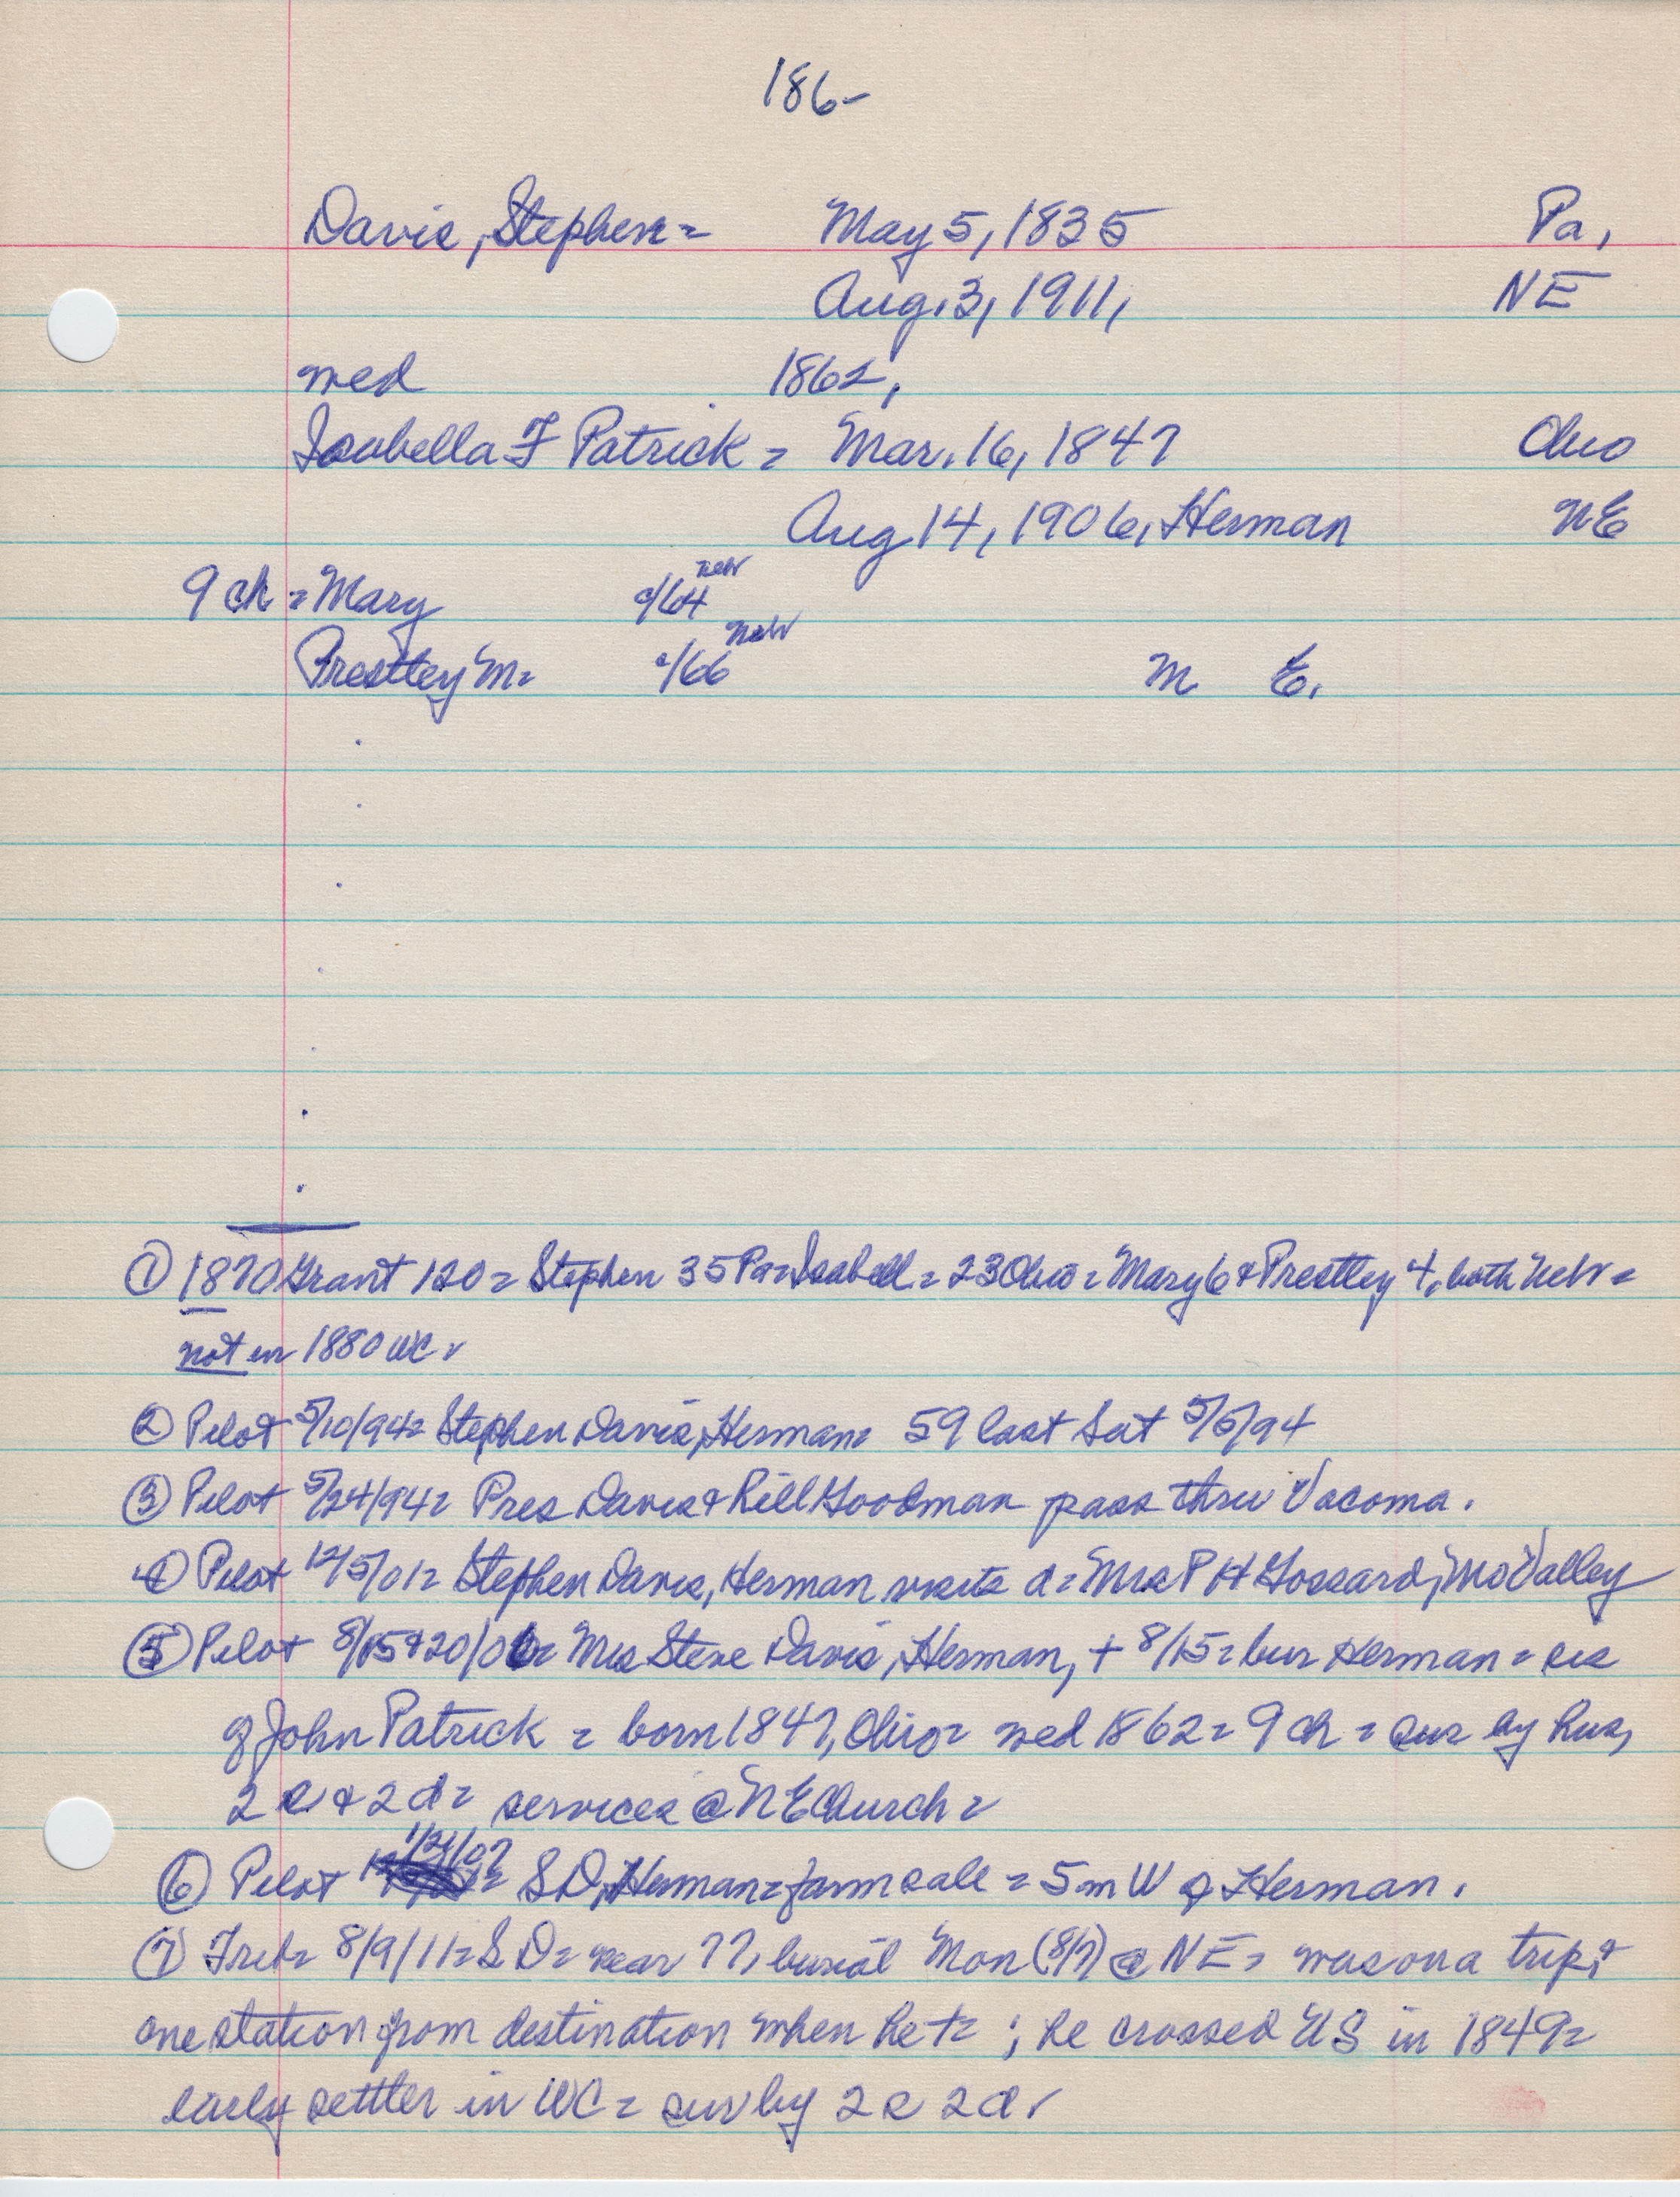 186-
Davis, Stephen = May 5, 1835 Pa,
Aug. 3, 1911, NE
wed 1862,
Isabella F Patrick = Mar. 16, 1847 Ohio
Aug 14, 1906, Herman NE
9 ch = Mary c/64 nebr
Prestley M = c/66 nebr M E.
① 1870 Grant 120 = Stephen 35 Pa = Isabell = 23 Ohio = Mary 6 & Prestley 4, both Nebr =
not in 1880 WC.
② Pilot 5/10/94 = Stephen Davis, Herman = 59 last Sat 5/5/94
③ Pilot 5/24/94 = Pres Davis & Bill Goodman pass thru Vacoma.
④ Pilot 12/5/01 = Stephen Davis, Herman visits d = Mrs P H Gossard, Mo Valley
⑤ Pilot 8/15 & 20/06 = Mrs Steve Davis, Herman, + 8/15 = bur Herman = sis
of John Patrick = born 1847, Ohio = wed 1862 = 9 ch = sur by hus,
2 s & 2 d = services @ NE Church =
⑥ Pilot 1/24/07 = S D, Herman = farm sale = 5 m W of Herman.
⑦ Trib = 8/9/11 = S D = near 77, burial Mon (8/7) @ NE = was on a trip, &
one station from destination when he + = ; he crossed US in 1849 =
early settler in WC = sur by 2 s 2 d.